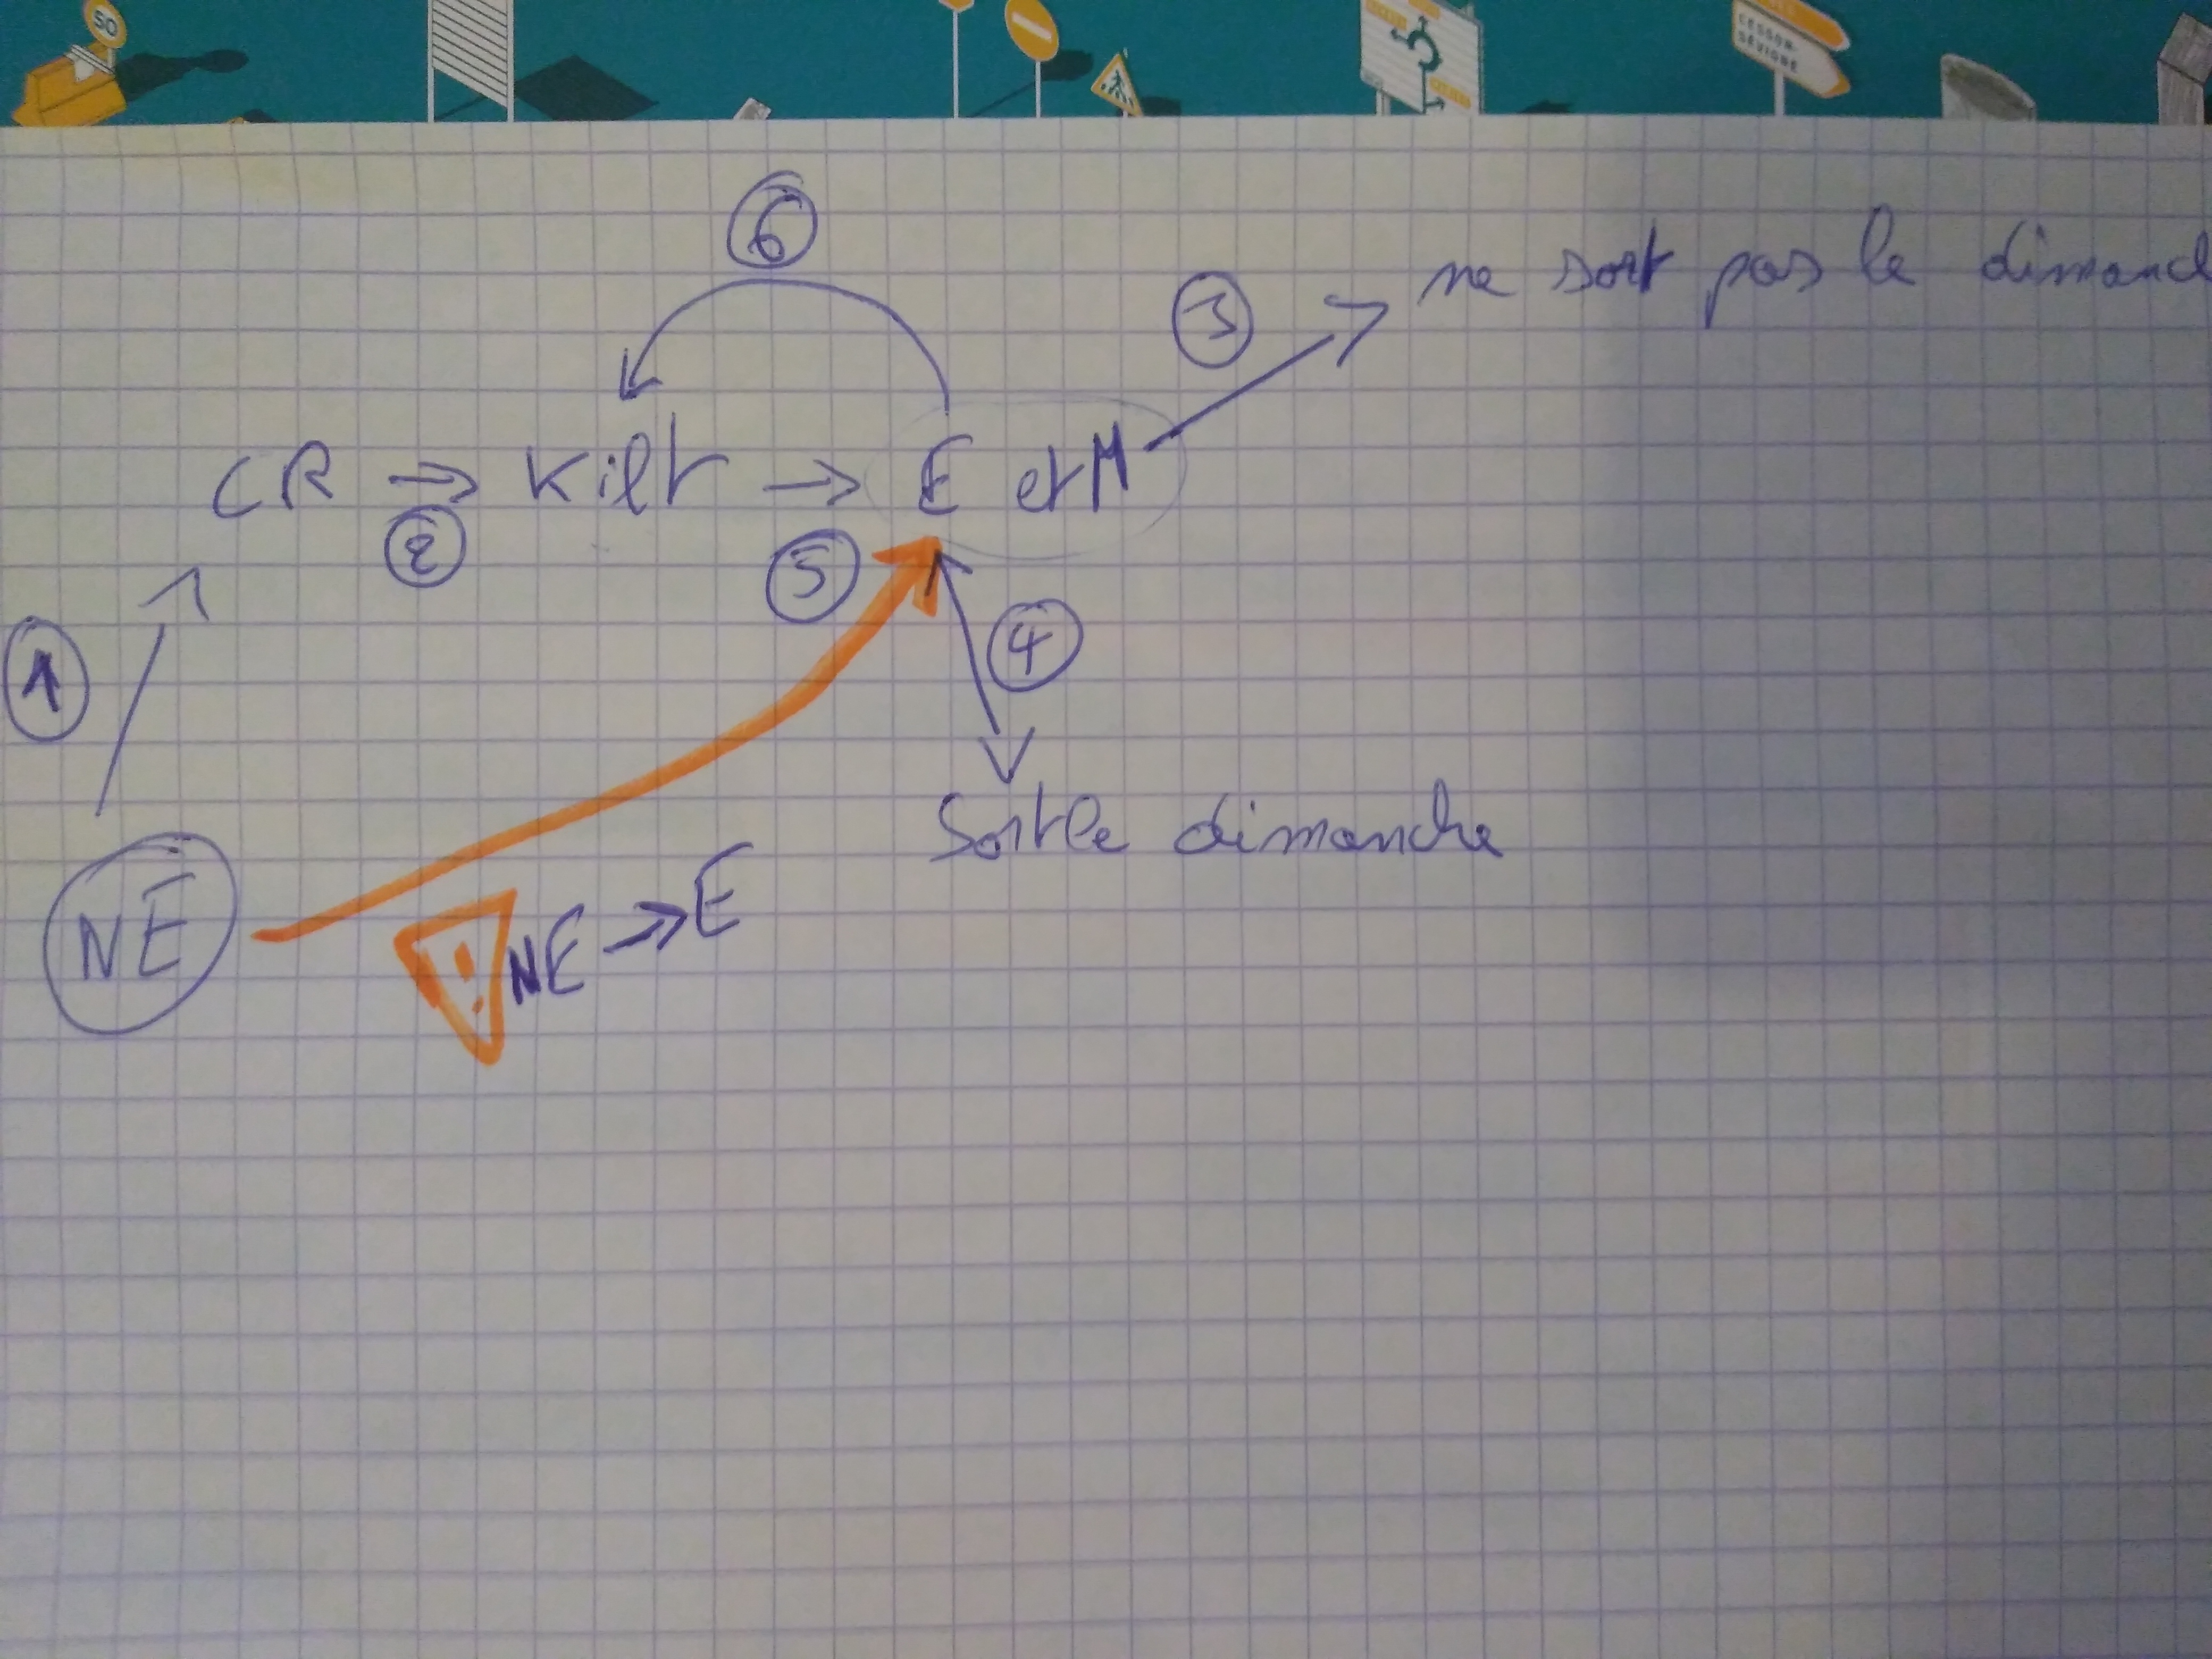 50
CESSON-
SÉVIGNÉ
6
3
ne sort pas le dimanch
CR → Kilt → E et M
2
5
4
1
Sort le dimanche
NE
! NE → E